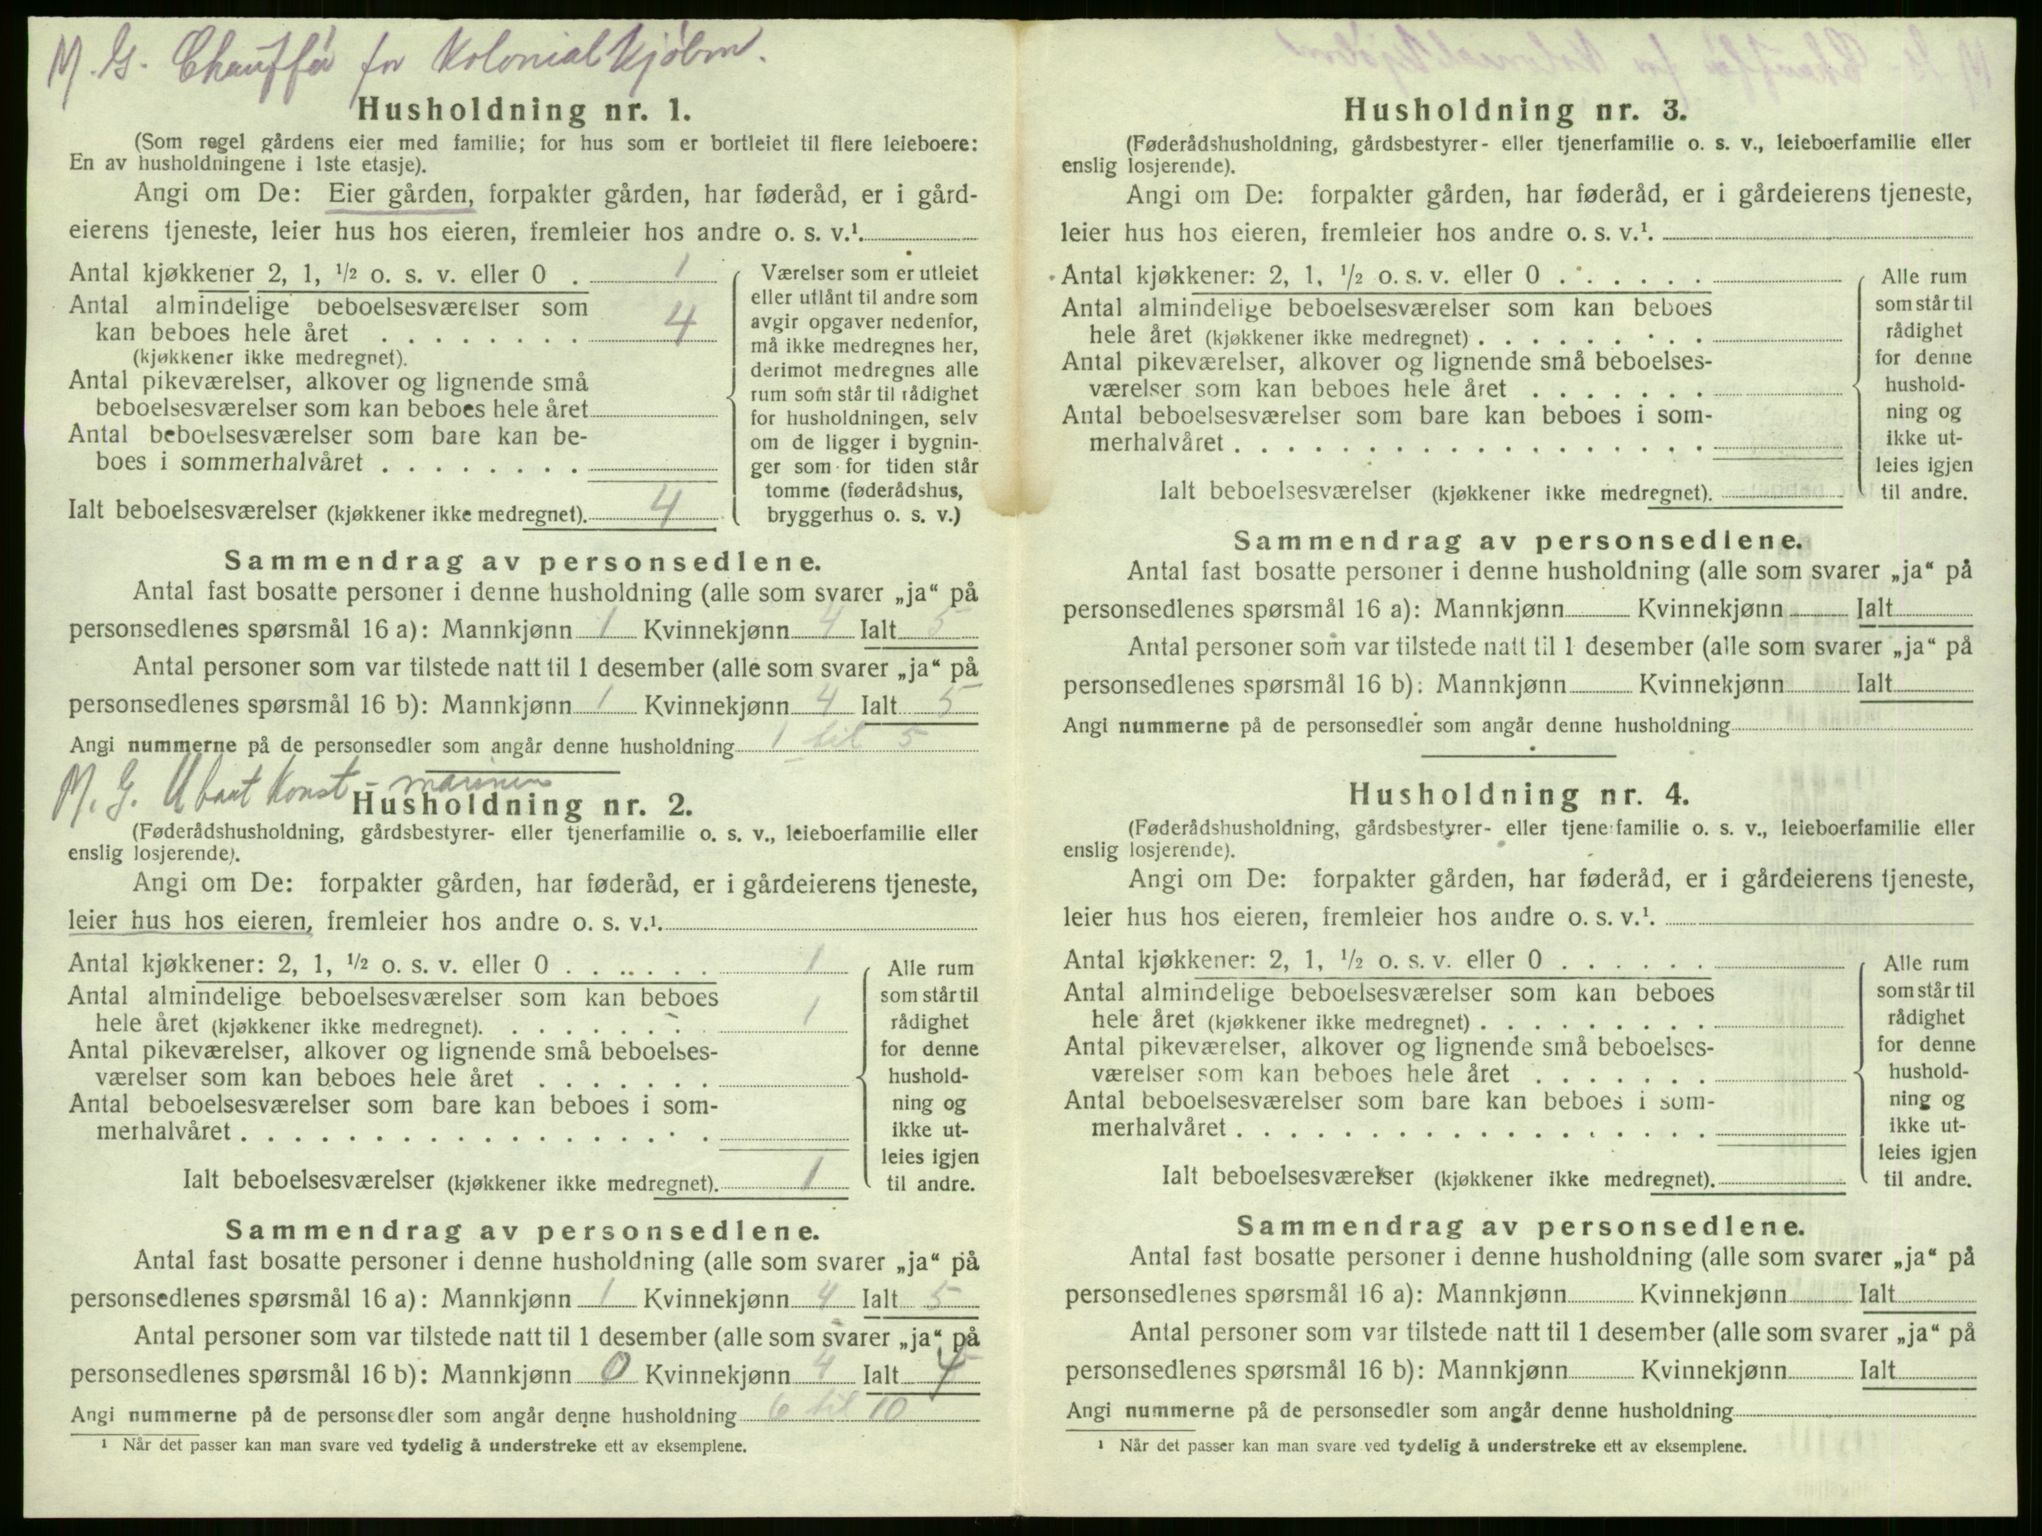 M. G. Chauffør for Kolonialkjøbm.
Husholdning nr. 1.
(Som regel gårdens eier med familie; for hus som er bortleiet til flere leieboere:
En av husholdningene i 1ste etasje).
Angi om De: Eier gården, forpakter gården, har føderåd, er i gård-
eierens tjeneste, leier hus hos eieren, fremleier hos andre o. s. v.¹.
Antal kjøkkener 2, 1, ½ o. s. v. eller 0 . 1
Antal almindelige beboelsesværelser som
kan beboes hele året . . . . . . . . 4
(kjøkkener ikke medregnet).
Antal pikeværelser, alkover og lignende små
beboelsesværelser som kan beboes hele året
Antal beboelsesværelser som bare kan be-
boes i sommerhalvåret . . . . . . . .
Ialt beboelsesværelser (kjøkkener ikke medregnet). 4
Værelser som er utleiet
eller utlånt til andre som
avgir opgaver nedenfor,
må ikke medregnes her,
derimot medregnes alle
rum som står til rådighet
for husholdningen, selv
om de ligger i bygnin-
ger som for tiden står
tomme (føderådshus,
bryggerhus o. s. v.)
Sammendrag av personsedlene.
Antal fast bosatte personer i denne husholdning (alle som svarer „ja“ på
personsedlenes spørsmål 16 a): Mannkjønn 1 Kvinnekjønn 4 Ialt 5
Antal personer som var tilstede natt til 1 desember (alle som svarer „ja“ på
personsedlenes spørsmål 16 b): Mannkjønn 1 Kvinnekjønn 4 Ialt 5
Angi nummerne på de personsedler som angår denne husholdning 1 til 5
M. G. Ubaat Konst - marinen
Husholdning nr. 2.
(Føderådshusholdning, gårdsbestyrer- eller tjenerfamilie o. s. v., leieboerfamilie eller
enslig losjerende).
Angi om De: forpakter gården, har føderåd, er i gårdeierens tjeneste,
leier hus hos eieren, fremleier hos andre o. s. v.¹.
Antal kjøkkener: 2, 1, ½ o. s. v. eller 0 . . . . . . 1
Antal almindelige beboelsesværelser som kan beboes
hele året (kjøkkener ikke medregnet). . . . . . . . . 1
Antal pikeværelser, alkover og lignende små beboelses-
værelser som kan beboes hele året . . . . . . .
Antal beboelsesværelser som bare kan beboes i som-
merhalvåret . . . . . . . . . . . . . . . . . .
Ialt beboelsesværelser (kjøkkener ikke medregnet). 1
Alle rum
som står til
rådighet
for denne
hushold-
ning og
ikke ut-
leies igjen
til andre.
Sammendrag av personsedlene.
Antal fast bosatte personer i denne husholdning (alle som svarer „ja“ på
personsedlenes spørsmål 16 a): Mannkjønn 1 Kvinnekjønn 4 Ialt 5
Antal personer som var tilstede natt til 1 desember (alle som svarer „ja“ på
personsedlenes spørsmål 16 b): Mannkjønn 0 Kvinnekjønn 4 Ialt 4
Angi nummerne på de personsedler som angår denne husholdning 6 til 10
¹ Når det passer kan man svare ved tydelig å understreke ett av eksemplene.
Husholdning nr. 3.
(Føderådshusholdning, gårdsbestyrer- eller tjenerfamilie o. s. v., leieboerfamilie eller
enslig losjerende).
Angi om De: forpakter gården, har føderåd, er i gårdeierens tjeneste,
leier hus hos eieren, fremleier hos andre o. s. v.¹.
Antal kjøkkener: 2, 1, ½ o. s. v. eller 0 . . . . . .
Antal almindelige beboelsesværelser som kan beboes
hele året (kjøkkener ikke medregnet) . . . . . . . . .
Antal pikeværelser, alkover og lignende små beboelses-
værelser som kan beboes hele året . . . . . . .
Antal beboelsesværelser som bare kan beboes i som-
merhalvåret . . . . . . . . . . . . . . . . . .
Ialt beboelsesværelser (kjøkkener ikke medregnet).
Alle rum
som står til
rådighet
for denne
hushold-
ning og
ikke ut-
leies igjen
til andre.
Sammendrag av personsedlene.
Antal fast bosatte personer i denne husholdning (alle som svarer „ja“ på
personsedlenes spørsmål 16 a): Mannkjønn Kvinnekjønn Ialt
Antal personer som var tilstede natt til 1 desember (alle som svarer „ja“ på
personsedlenes spørsmål 16 b): Mannkjønn Kvinnekjønn Ialt
Angi nummerne på de personsedler som angår denne husholdning
Husholdning nr. 4.
(Føderådshusholdning, gårdsbestyrer- eller tjenerfamilie o. s. v., leieboerfamilie eller
enslig losjerende).
Angi om De: forpakter gården, har føderåd, er i gårdeierens tjeneste,
leier hus hos eieren, fremleier hos andre o. s. v.¹.
Antal kjøkkener: 2, 1, ½ o. s. v. eller 0 . . . . . .
Antal almindelige beboelsesværelser som kan beboes
hele året (kjøkkener ikke medregnet) . . . . . . . . .
Antal pikeværelser, alkover og lignende små beboelses-
værelser som kan beboes hele året . . . . . . .
Antal beboelsesværelser som bare kan beboes i som-
merhalvåret . . . . . . . . . . . . . . . . . .
Ialt beboelsesværelser (kjøkkener ikke medregnet).
Alle rum
som står til
rådighet
for denne
hushold-
ning og
ikke ut-
leies igjen
til andre.
Sammendrag av personsedlene.
Antal fast bosatte personer i denne husholdning (alle som svarer „ja“ på
personsedlenes spørsmål 16 a): Mannkjønn Kvinnekjønn Ialt
Antal personer som var tilstede natt til 1 desember (alle som svarer „ja“ på
personsedlenes spørsmål 16 b): Mannkjønn Kvinnekjønn Ialt
Angi nummerne på de personsedler som angår denne husholdning
¹ Når det passer kan man svare ved tydelig å understreke ett av eksemplene.